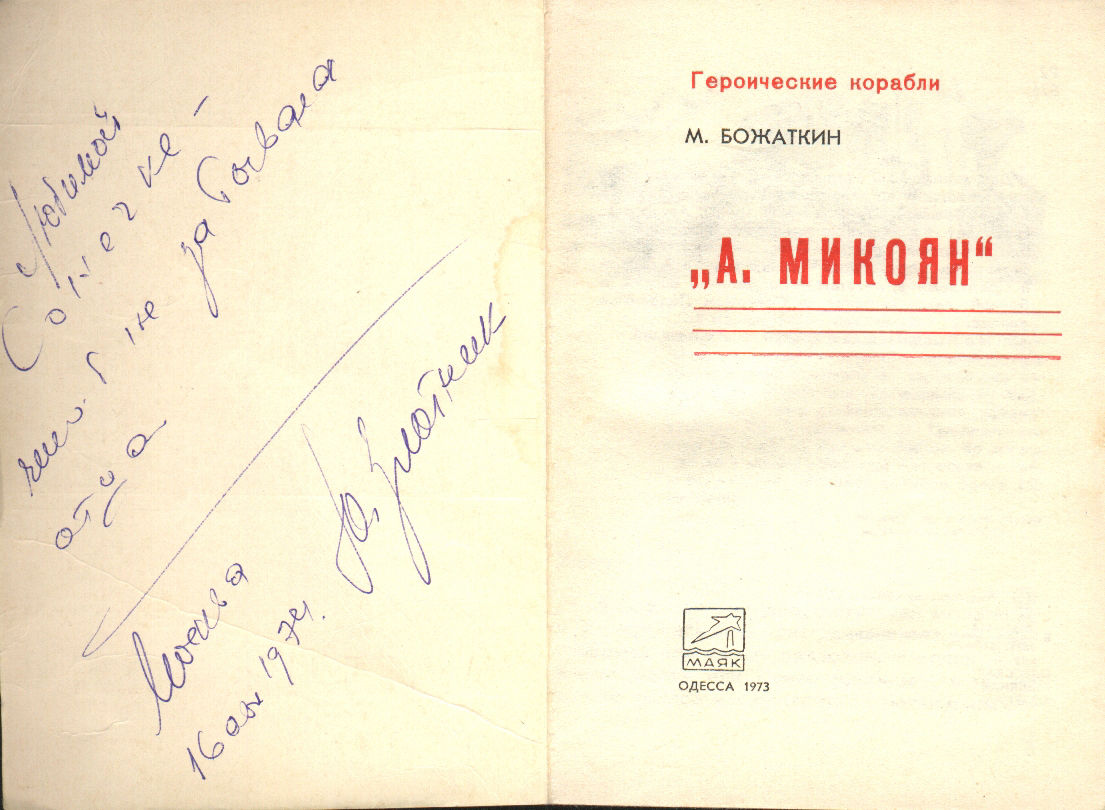 Любимой
Сонечке -
чтоб не забывала
отца
Ю. Злотник
Москва
16 1974.
Героические корабли
М. БОЖАТКИН
„А. МИКОЯН“
МАЯК
ОДЕССА 1973